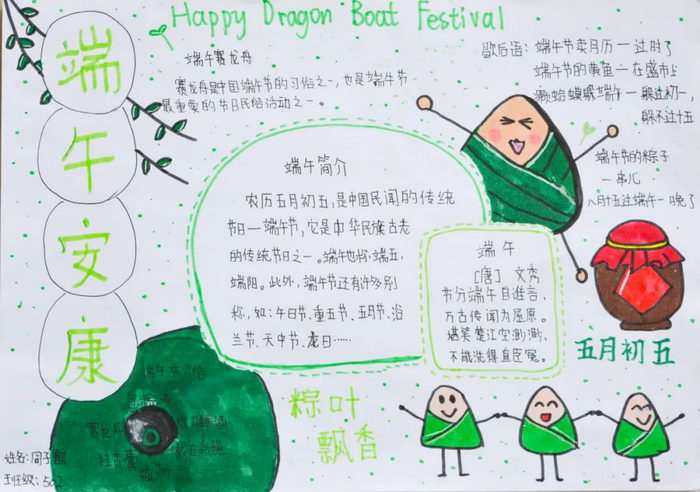 Happy Dragon Boat Festival
端午安康
端午赛龙舟
赛龙舟是中国端午节的习俗之一，也是端午节
最重要的节日民俗活动之一。
歇后语：端午节卖月历一过时了
端午节的黄鱼一在盛市上
癞蛤蟆躲端午一躲过初一，
躲不过十五
端午节的粽子
一串儿
八月十五过端午一晚了
端午简介
农历五月初五，是中国民间的传统
节日一端午节，它是中华民族古老
的传统节日之一。端午也称端五，
端阳。此外，端午节还有许多别
称，如：午日节、重五节、五月节、浴
兰节、天中节、龙日……
端午
［唐］ 文秀
节分端午自谁言，
万古传闻为屈原。
堪笑楚江空渺渺，
不能洗得直臣冤。
五月初五
粽叶
飘香
赛龙舟
姓名：周子
班级：502